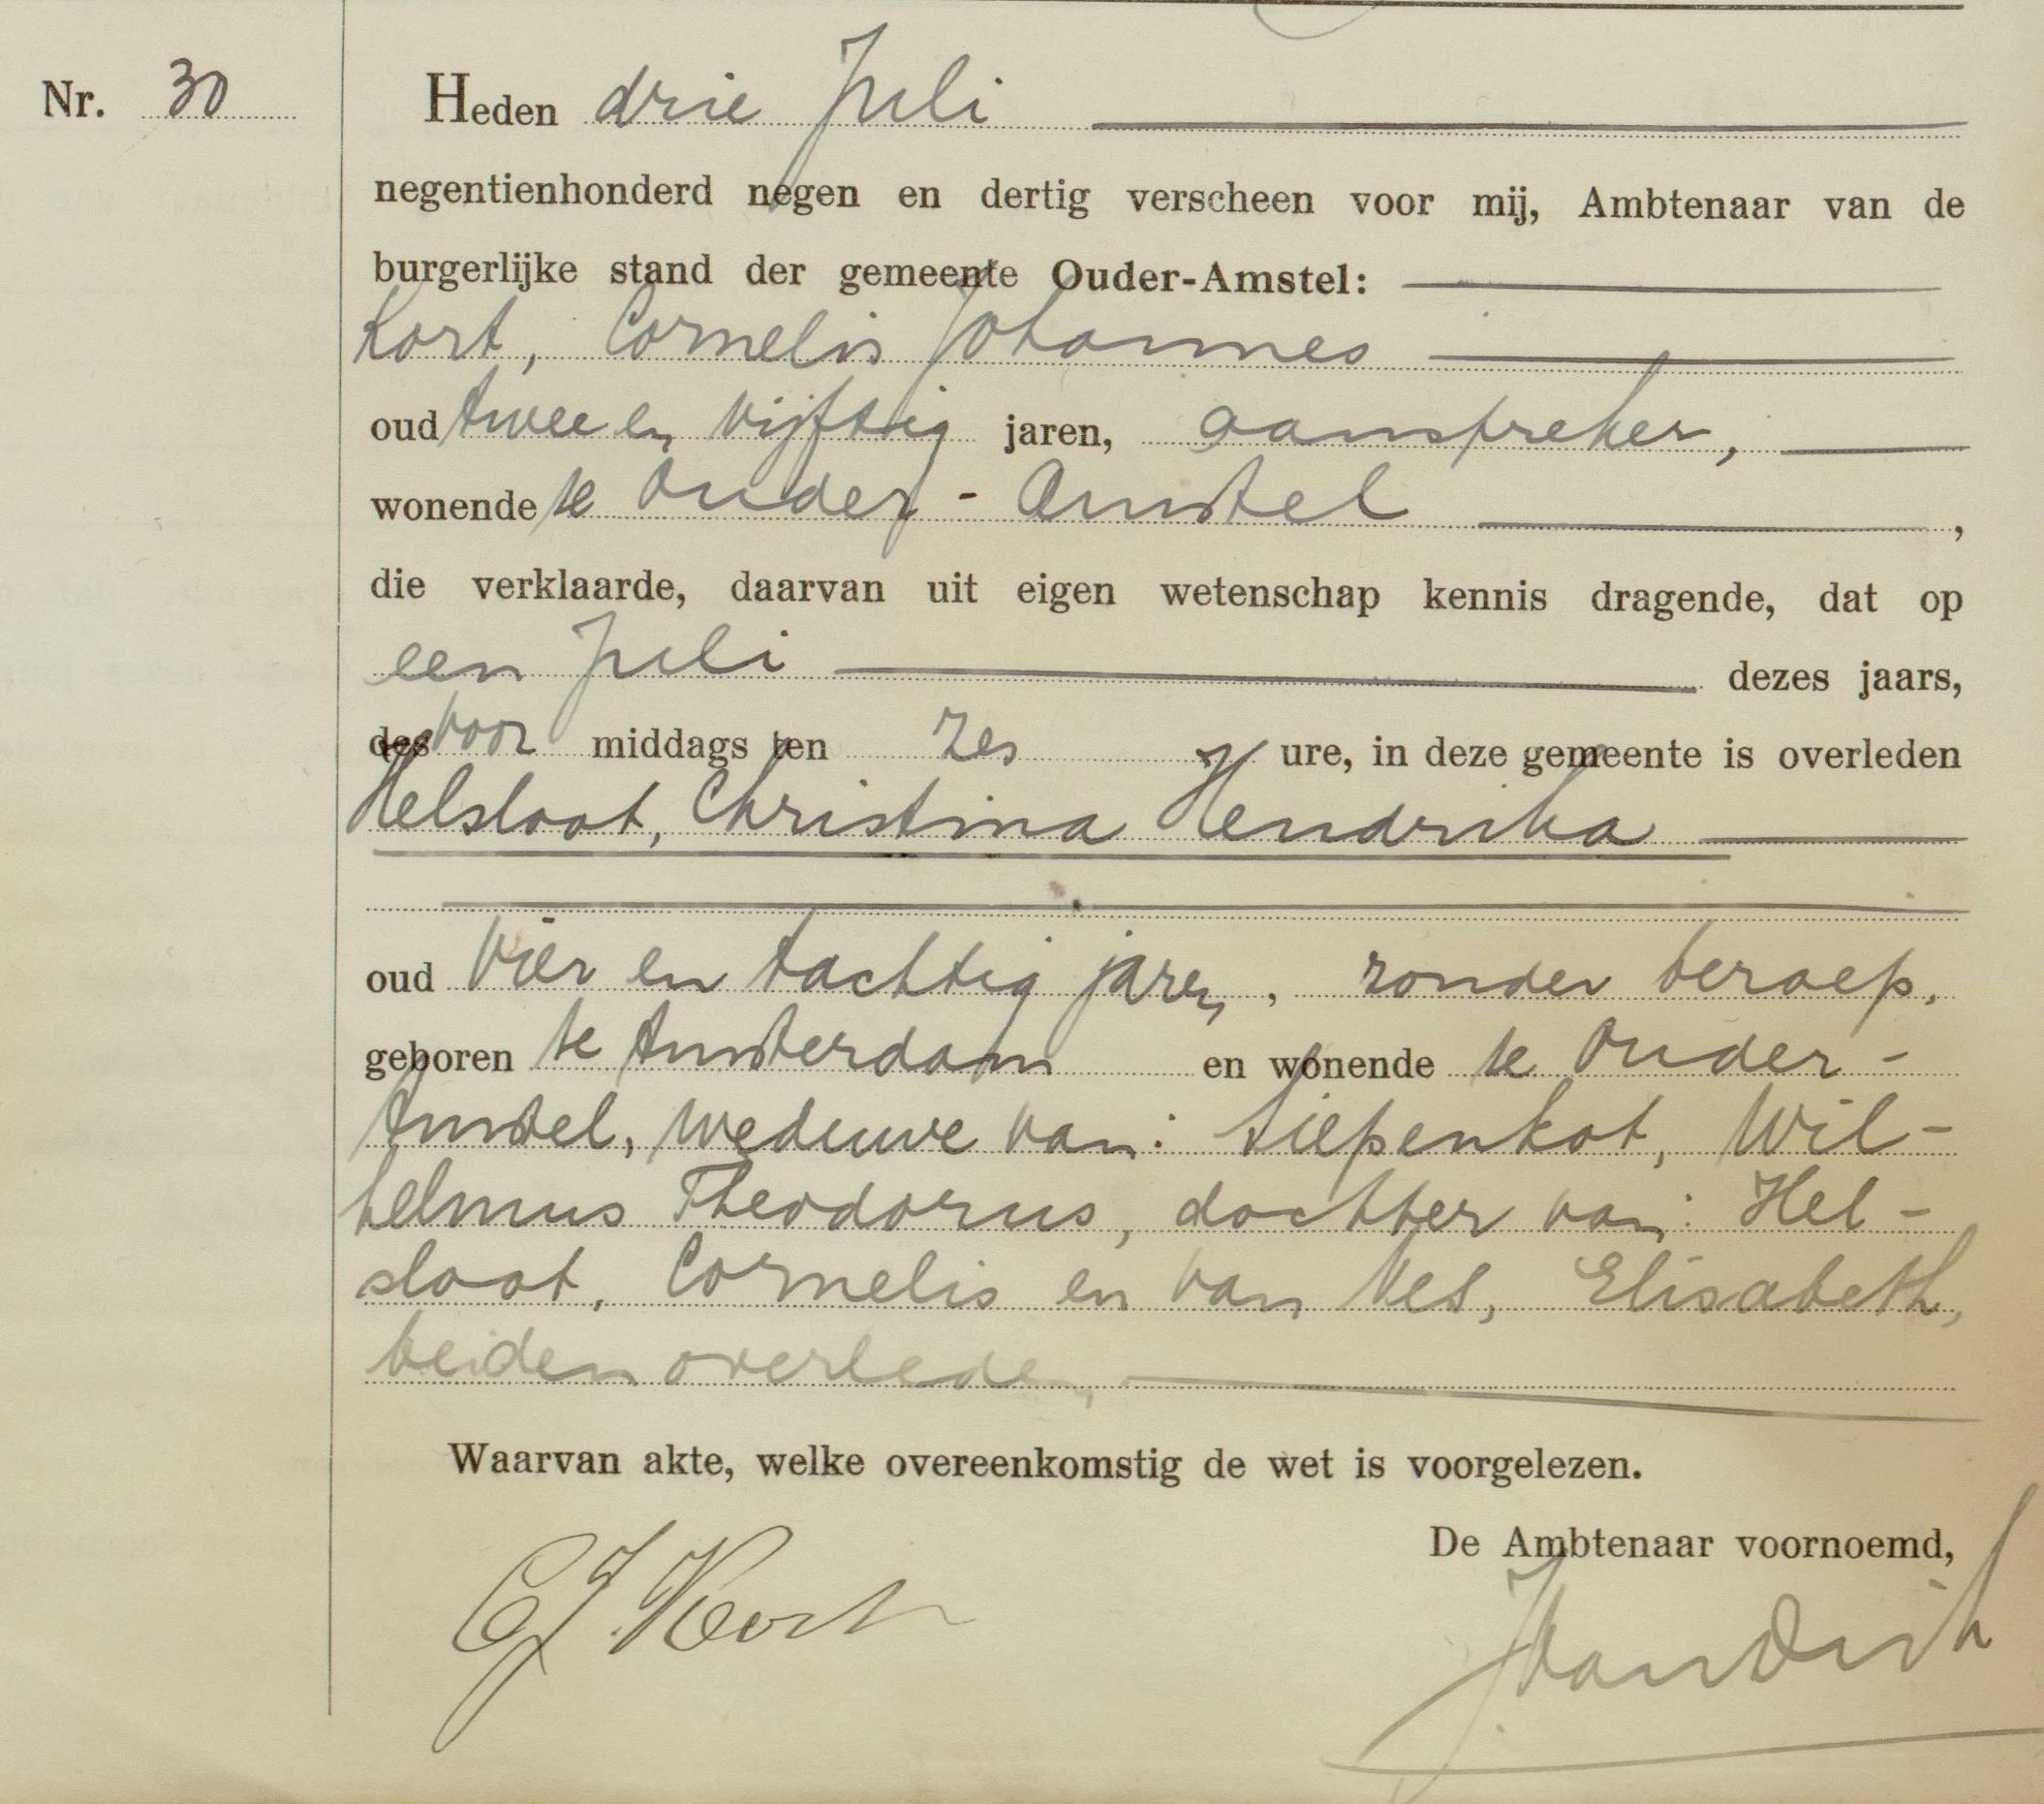 Nr. 30
Heden drie Juli
negentienhonderd negen en dertig verscheen voor mij, Ambtenaar van de
burgerlijke stand der gemeente Ouder-Amstel:
Kort, Cornelis Johannes
oud twee en vijftig jaren, aanspreker,
wonende te Ouder-Amstel ,
die verklaarde, daarvan uit eigen wetenschap kennis dragende, dat op
een Juli dezes jaars,
des voor middags ten zes ure, in deze gemeente is overleden
Helsloot, Christina Hendrika
oud vier en tachtig jaren, zonder beroep,
geboren te Amsterdam en wonende te Ouder-
Amstel, weduwe van: Liepenkot, Wil-
helmus Theodorus, dochter van: Hel-
sloot, Cornelis en van Nes, Elisabeth,
beiden overleden,
Waarvan akte, welke overeenkomstig de wet is voorgelezen.
De Ambtenaar voornoemd,
CJ Kort